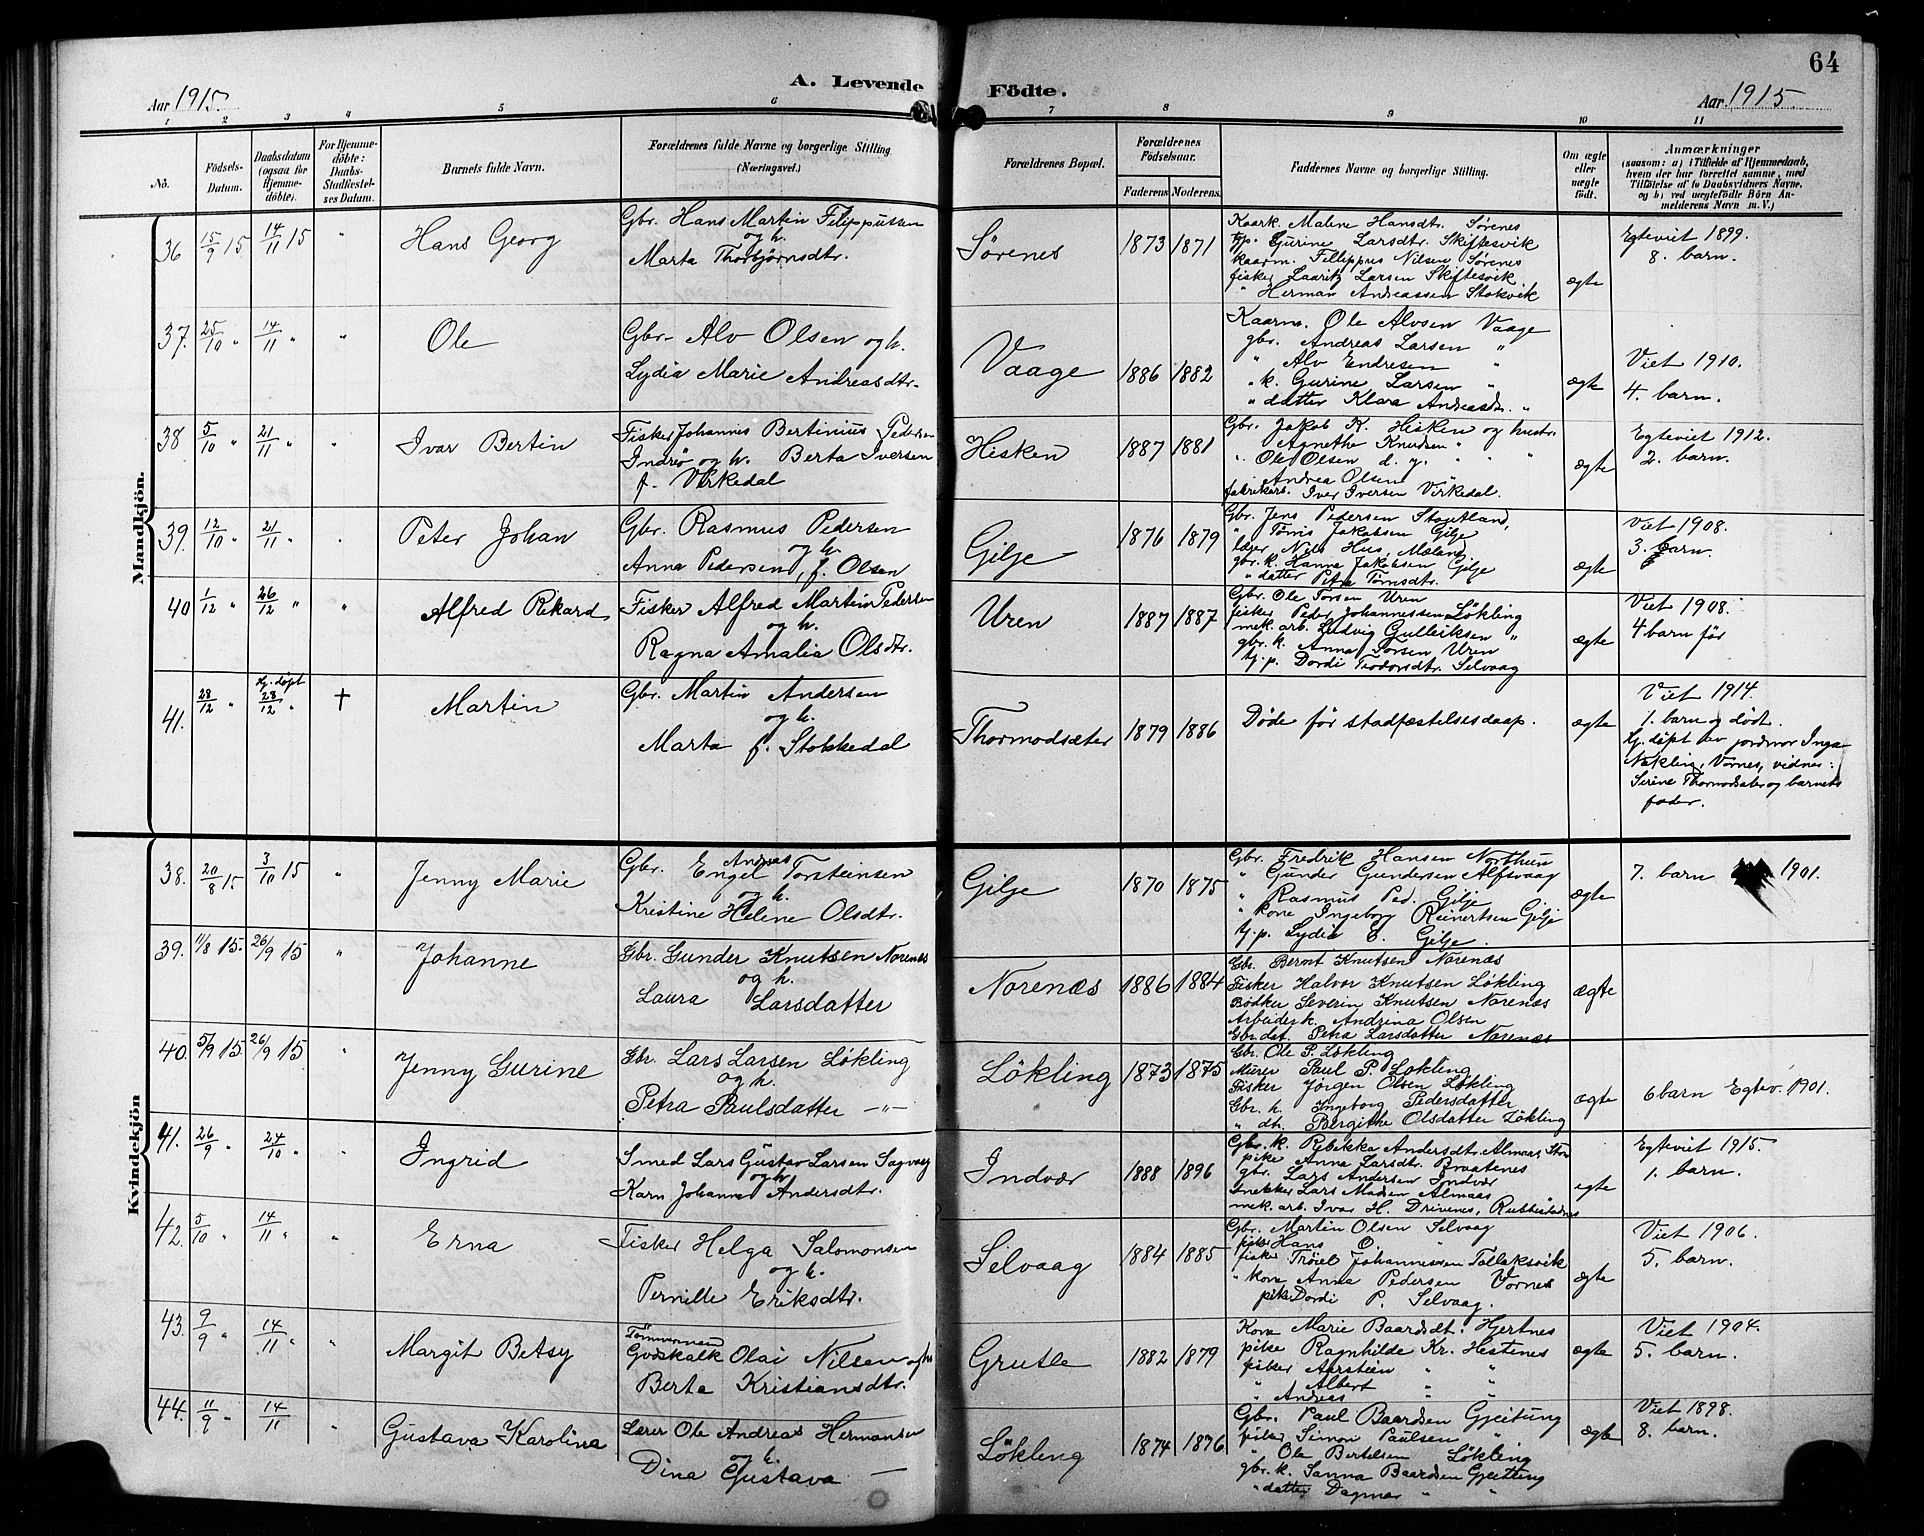 64
A. Levende Födte.
Aar 1915.
Aar 1915.
1 2 3 4 5 6 7 8 9 10 11
No.
Födsels-Datum.
Daabsdatum (ogsaa for Hjemmedöbte).
For Hjemmedöbte: Daabs-Stadfæstelses Datum.
Barnets fulde Navn.
Forældrenes fulde Navne og borgerlige Stilling (Næringsvei.)
Forældrenes Bopæl.
Forældrenes Födselsaar.
Faderens Moderens
Faddernes Navne og borgerlige Stilling.
Om ægte eller uægte födt.
Anmærkninger
(saasom: a) i Tilfælde af Hjemmedaab, hvem der har forrettet samme, med Tilföielse af to Daabsvidners Navne, og b) ved uægtefödte Börn Anmelderens Navn m. V.)
Mandkjön.
36 15/9 15 14/11 15 " Hans Georg
Gbr. Hans Martin Filippussen
og h.
Marta Thorbjørnsdtr.
Sørenes 1873 1871
Kaark. Malene Hansdtr. Sørenes
tjp. Gurine Larsdtr. Skiftesvik
Kaarm. Fillippus Nilsen Sørenes
fisker Lauritz Larsen Skiftesvik
" Herman Andreassen Stokvik
ægte
Egteviet 1899.
8. barn.
37. 25/10 " 14/11 " " Ole
Gbr. Alv Olsen og h.
Lydia Marie Andreasdtr.
Vaage 1886 1882
Kaarm. Ole Alvsen Vaage
gbr. Andreas Larsen "
" Alv Endresen "
" k. Gurine Larsen "
" datter Klara Andreasdr. "
ægte
Viet 1910.
4. barn.
38 5/10 " 21/11 " " Ivar Bertin
Fisker Johannes Bertinius Pedersen
Indrø og h. Berta Iversen
f. Virkedal
Hisken 1887 1881
Gbr. Jakob K. Hisken og hustr.
Agnethe Knudsen "
" Ole Olsen d. y. " "
Andrea Olsen
fabrikarb. Iver Iversen Virkedal.
ægte
Egteviet 1912.
2. barn.
39. 12/10 " 21/11 " " Peter Johan
Gbr. Rasmus Pedersen
og h.
Anna Pedersen, f. Olsen
Gilje 1876 1879
Gbr. Jens Pedersen
" Tønis Jakobsen Gilje
Nils Hus, Mæland
gbr. k. Hanna Jakobsen Gilje
" datter Petra Tønisdtr.
ægte
Viet 1908.
3. barn.
40 1/12 " 26/12 " " Alfred Rikard
Fisker Alfred Martin Pedersen
og h.
Ragna Amalia Olsdtr.
Uren 1887 1887
Gbr. Ole Torsen Uren
fisker Peder Johannessen Løkling
mek. arb. Ludvig Gulleiksen "
gbr. k. Anna Torsen Uren
tj. p. Dordi Teodorsdtr. Selvaag
ægte
Viet 1908.
4 barn før
41. 28/12 " Hj. døpt 28/12 " † Martin
Gbr. Martin Andersen
og h.
Marta f. Stokkedal
Thormodsæter 1879 1886
Døde før stadfæstelsesdaap.
ægte
Viet 1914.
1. barn og dødt.
Hj. døpt av jordmor Inga
Nøkling, Vornes, vidner:
Serine Thormodsæter og barnets
fader.
Kvindekjön
38. 20/8 15 3/10 15 " Jenny Marie
Andreas
Gbr. Engel Torsteinsen
og h.
Kristine Helene Olsdtr.
Gilje 1870 1875
Gbr. Fredrik Hansen Northun
" Gunder Gundersen Alfsvaag
" Rasmus Ped. Gilje
" kone Ingeborg Reinertsen Gilje
tj. p. Lydia E. Gilje.
ægte
7. barn 1901.
39. 11/8 15. 26/9 15 " Johanne
Gbr. Gunder Knutsen Norenes
og h.
Laura Larsdatter
Norenæs 1886 1884
Gbr. Berent Knutsen Norenæs
Fisker Halvor Knutsen Løkling
Bødker Severin Knutsen Norenæs
Arbeidersk. Andrina Olsen
Gbr. dat. Petra Larsdatter Norenæs
ægte
40. 5/9 15. 26/9 15 " Jenny Gurine
Gbr. Lars Larsen Løkling
og h.
Petra Paulsdatter —"—
Løkling 1873 1875
Gbr. Ole P. Løkling
Murer Paul P. Løkling
Fisker Jörgen Olsen Løkling
Gbr. h. Ingeborg Pedersdatter
" dt. Bergithe Olsdatter Løkling
ægte
6 barn Egtev. 1901.
41. 26/9 " 24/10 " Ingrid
Smed Lars Gustav Larsen Sagvaag
og h.
Karn Johanne Andersdtr.
Indvær 1888 1896
Gbr. k. Rebekka Andersdtr. Almaas, Stor
pike Anna Larsdtr. Braatenes
gbr. Lars Andersen Indvær
Snekker Lars Madsen Almaas
mek. arb. Ivar H. Drivenes, Rubbestadnes
egte
Egteviet 1915.
1. barn.
42. 5/10 " 14/11 " " Erna
Fisker Helga Salomonsen
og h.
Pernille Eriksdtr.
Selvaag 1884 1885
Gbr. Martin Olsen Selvaag
fisker Hans O. "
fisker Trøiel Johannessen Tollaksvik
" kone Anna Pedersen Vornes
pike Dordi P. Selvaag.
ægte
Viet 1906.
5. barn.
43. 9/9 " 14/11 " " Margit Betsy
Tømmermen
Godskalk Olai Nilsen og h.
Berta Kristiansdtr.
Grutle 1882 1879
Kone Marie Baardsdt. Hjertnes
pike Ragnhilde Kr. Hestenes
fisker Aarstein " "
" Albert " "
" Andreas " "
ægte
Viet 1904.
5. barn.
44. 11/9 " 14/11 " Gustava Karolina
Lærer Ole Andreas Hermansen
og h.
Dina Gustava —
Løkling 1874 1876
Gbr. Paul Baardsen Gjeitung
fisker Simon Paulsen "
" Ole Bertelsen Løkling
gbr. k. Sanna Baardsen Gjeitung
" datter Dagmar " "
ægte
Viet 1898.
8. barn.